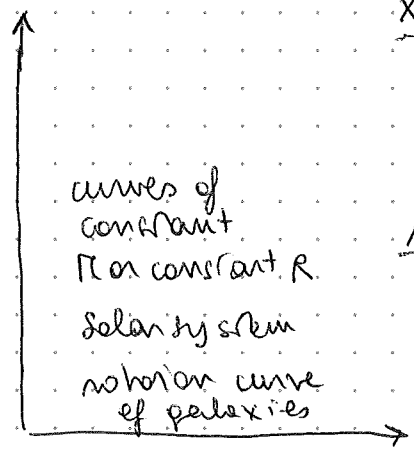 curves of
constant
M or constant R
Solar system
rotation curve
of galaxies
X